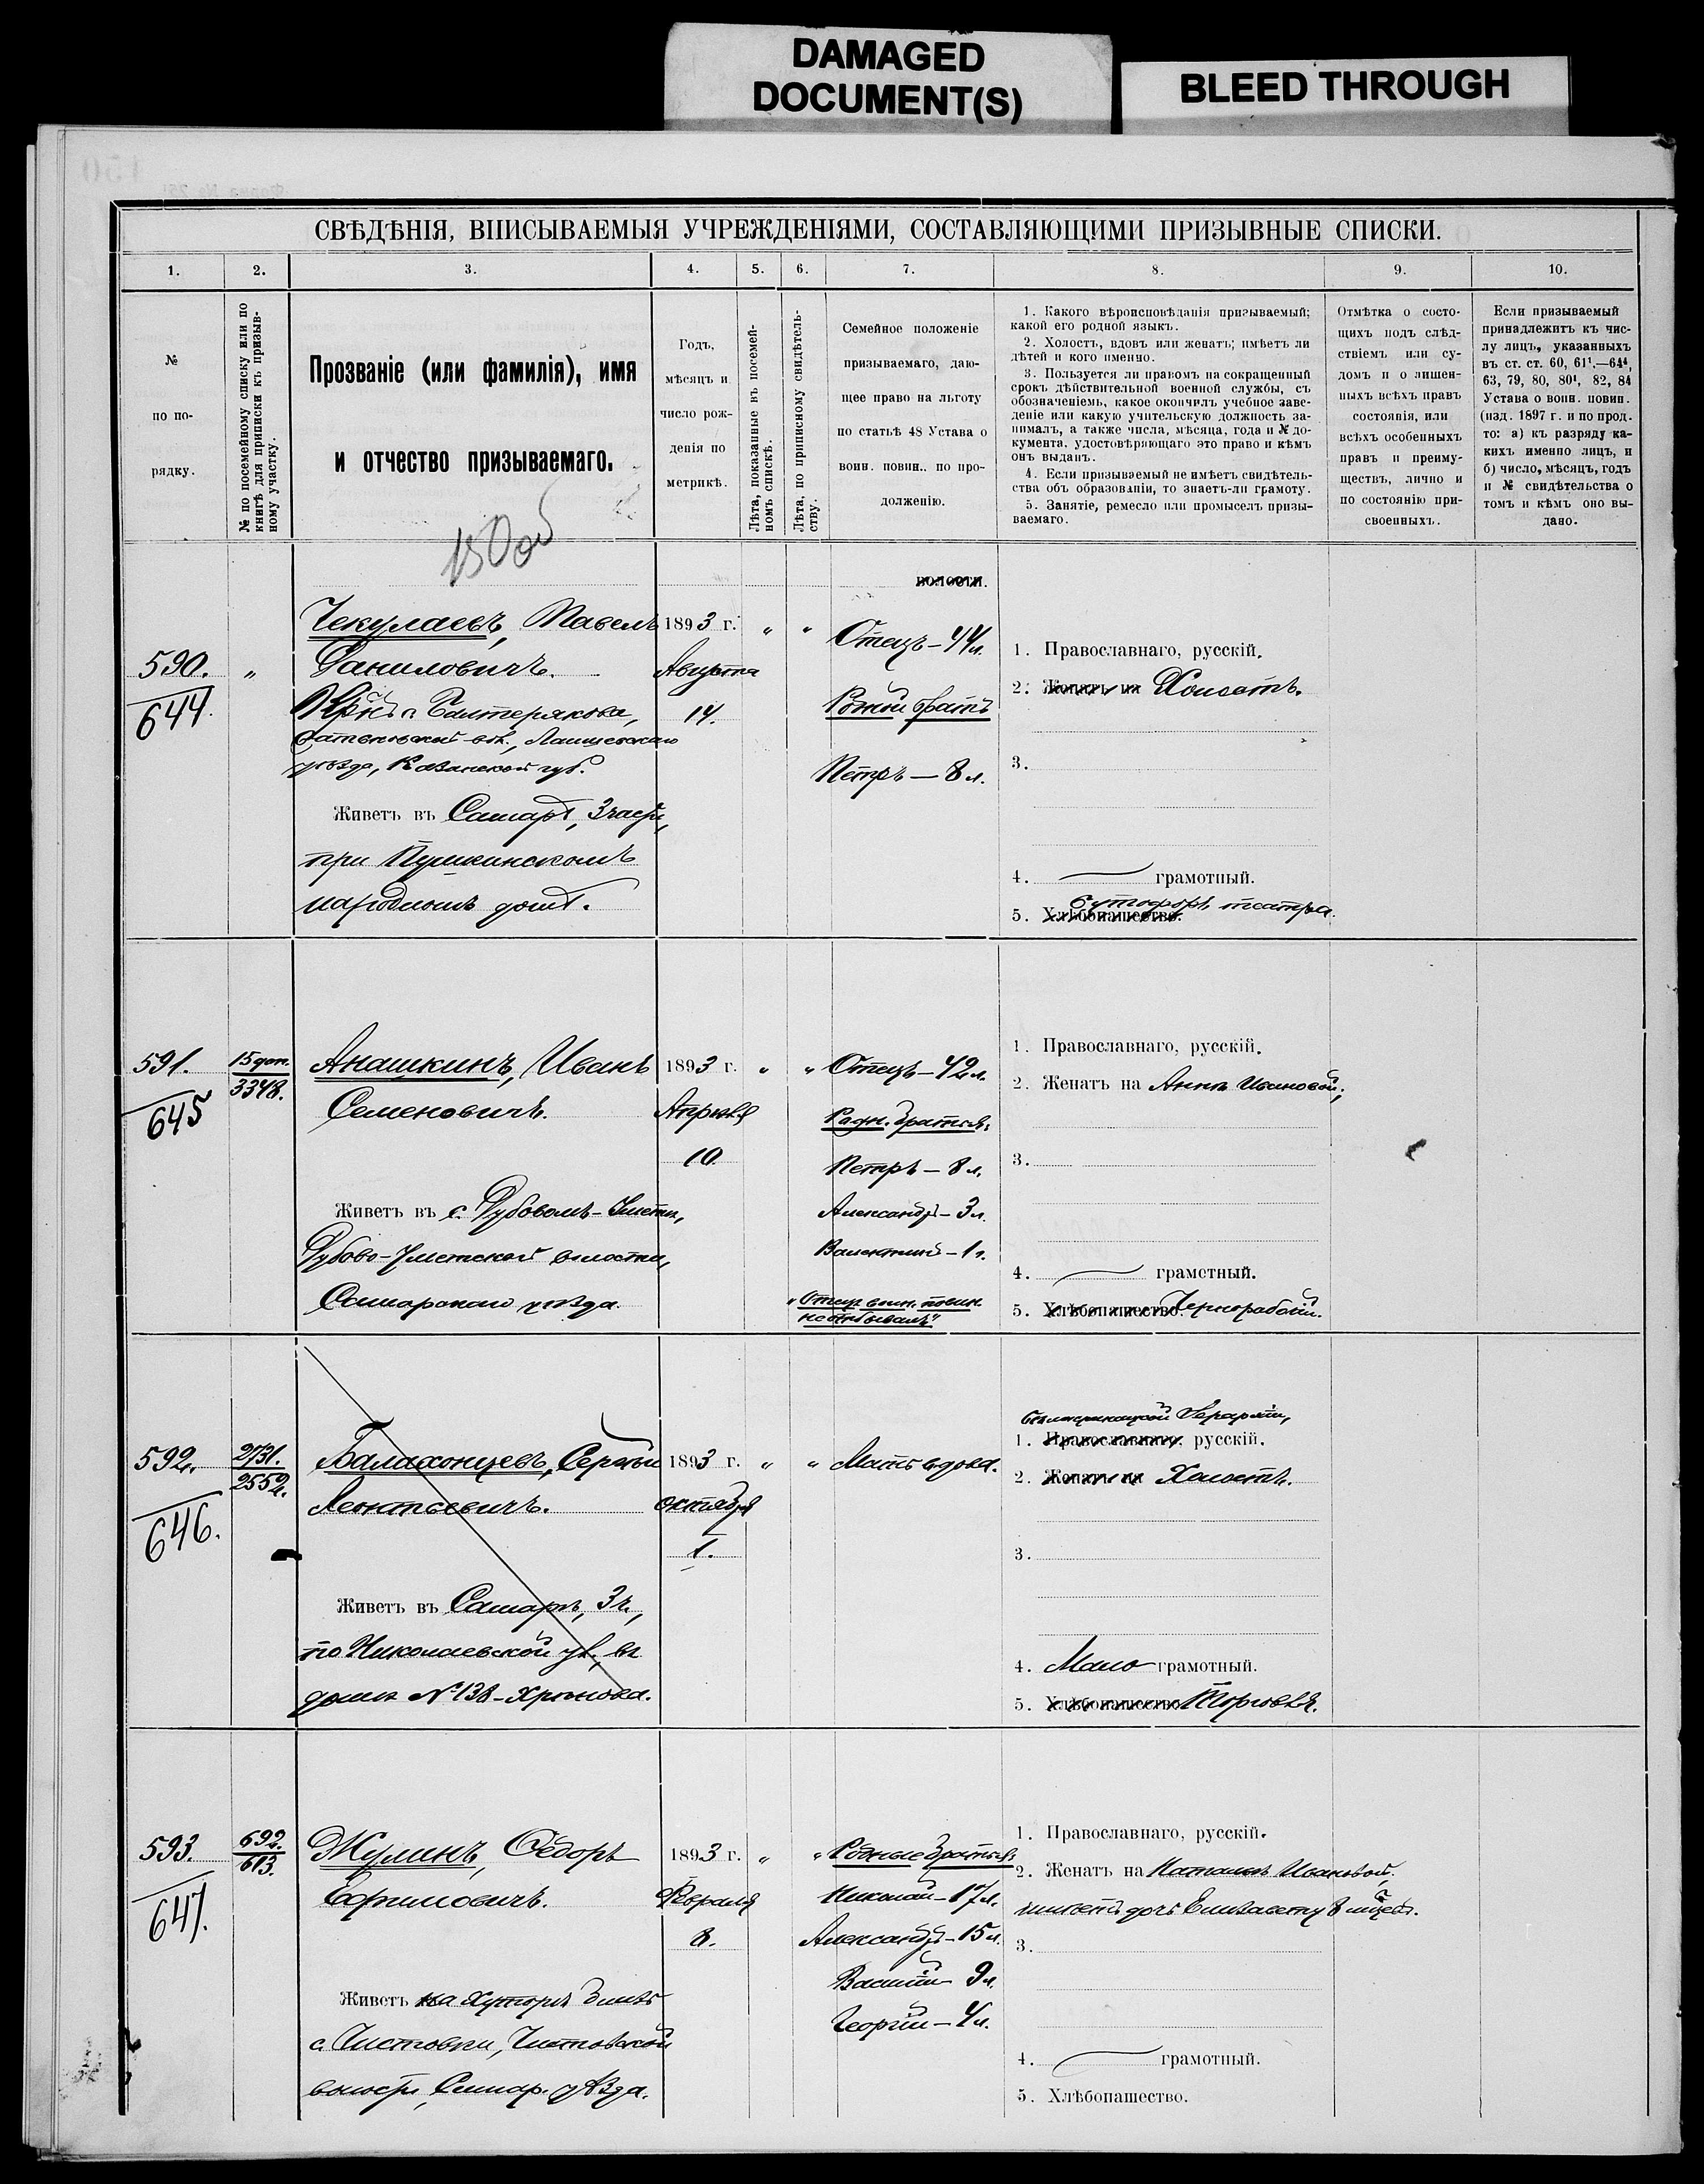 DAMAGED
DOCUMENT(S)
BLEED THROUGH
СВѢДѢНІЯ, ВПИСЫВАЕМЫЯ УЧРЕЖДЕНІЯМИ, СОСТАВЛЯЮЩИМИ ПРИЗЫВНЫЕ СПИСКИ.
1. 2. 3. 4. 5. 6. 7. 8. 9. 10.
№
по по-
рядку.
№ по посемейному списку или по
книгѣ для приписки къ призыв-
ному участку.
Прозваніе (или фамилія), имя
и отчество призываемаго.
150об
Годъ,
мѣсяцъ и
число рож-
денія по
метрикѣ.
Лѣта, показанные въ посемей-
номъ спискѣ.
Лѣта, по приписному свидѣтель-
ству.
Семейное положеніе
призываемаго, даю-
щее право на льготу
по статьѣ 48 Устава о
воин. повин., по про-
долженію.
1. Какого вѣроисповѣданія призываемый;
какой его родной языкъ.
2. Холостъ, вдовъ или женатъ; имѣетъ ли
дѣтей и кого именно.
3. Пользуется ли правомъ на сокращенный
срокъ дѣйствительной военной службы, съ
обозначеніемъ, какое окончилъ учебное заве-
деніе или какую учительскую должность за-
нималъ, а также числа, мѣсяца, года и № до-
кумента, удостовѣряющаго это право и кѣмъ
онъ выданъ.
4. Если призываемый не имѣетъ свидѣтель-
ства объ образованіи, то знаетъ-ли грамоту.
5. Занятіе, ремесло или промыселъ призы-
ваемаго.
Отмѣтка о состо-
щихъ подъ слѣд-
ствіемъ или су-
домъ и о лишен-
ныхъ всѣхъ правъ
состоянія, или
всѣхъ особенныхъ
правъ и преиму-
ществъ, лично и
по состоянію при-
своенныхъ.
Если призываемый
принадлежитъ къ чис-
лу лицъ, указанныхъ
въ ст. ст. 60, 61¹,—64⁴,
63, 79, 80, 80¹, 82, 84
Устава о воин. повин.
(изд. 1897 г. и по прод.
то: а) къ разряду ка-
кихъ именно лицъ, и
б) число, мѣсяцъ, годъ
и № свидѣтельства о
томъ и кѣмъ оно вы-
дано.
волости.
590.
644.
"
Чекулаевъ, Павелъ
Даниловичъ.
Лаишевскаго
уѣзда, Казанской губ.
Живетъ въ Самарѣ, 3 части,
при Пушкинскомъ
народномъ домѣ.
1893 г.
Августа
14.
" "
Отецъ — 44 л.
Родной братъ
Петръ — 8 л.
1. Православнаго, русскій.
2. Женатъ на Холостъ.
3.
4. грамотный.
5. Хлѣбопашество. Бутафоръ театра.
591.
645
15 доп.
3348.
Анашкинъ, Иванъ
Семеновичъ.
Живетъ въ с. Дубовомъ-Уметѣ,
Дубово-Уметской волости,
Самарскаго уѣзда.
1893 г.
Апрѣля
10.
" "
Отецъ — 42 л.
Родн. братья:
Петръ — 8 л.
Александръ — 3 л.
Валентинъ — 1 г.
"Отецъ воин. повин.
не отбывалъ"
1. Православнаго, русскій.
2. Женатъ на Аннѣ Ивановой;
3.
4. грамотный.
5. Хлѣбопашество. Чернорабочій.
592.
646.
2731.
2552.
Балахонцевъ, Сергѣй
Леонтьевичъ.
Живетъ въ Самарѣ, 3 ч.,
по Николаевской ул., въ
домѣ № 138 - Хрѣнова.
1893 г.
Октября
1.
" "
Мать вдова.
Бѣлокриницкой Іерархіи,
1. Православнаго, русскій.
2. Женатъ на Холостъ.
3.
4. Мало грамотный.
5. Хлѣбопашество Торговля.
593.
647.
692.
613.
Жулинъ, Ѳедоръ
Ефимовичъ.
Живетъ на хуторѣ близъ
с. Чистовки, Чистовской
волости, Самар. уѣзда.
1893 г.
Февраля
8.
" "
Родные братья:
Николай — 17 л.
Александръ — 15 л.
Василій — 9 л.
Георгій — 4 л.
1. Православнаго, русскій.
2. Женатъ на Натальѣ Ивановой;
имѣетъ дочь Елизавету 8 мѣсяц.
3.
4. грамотный.
5. Хлѣбопашество.